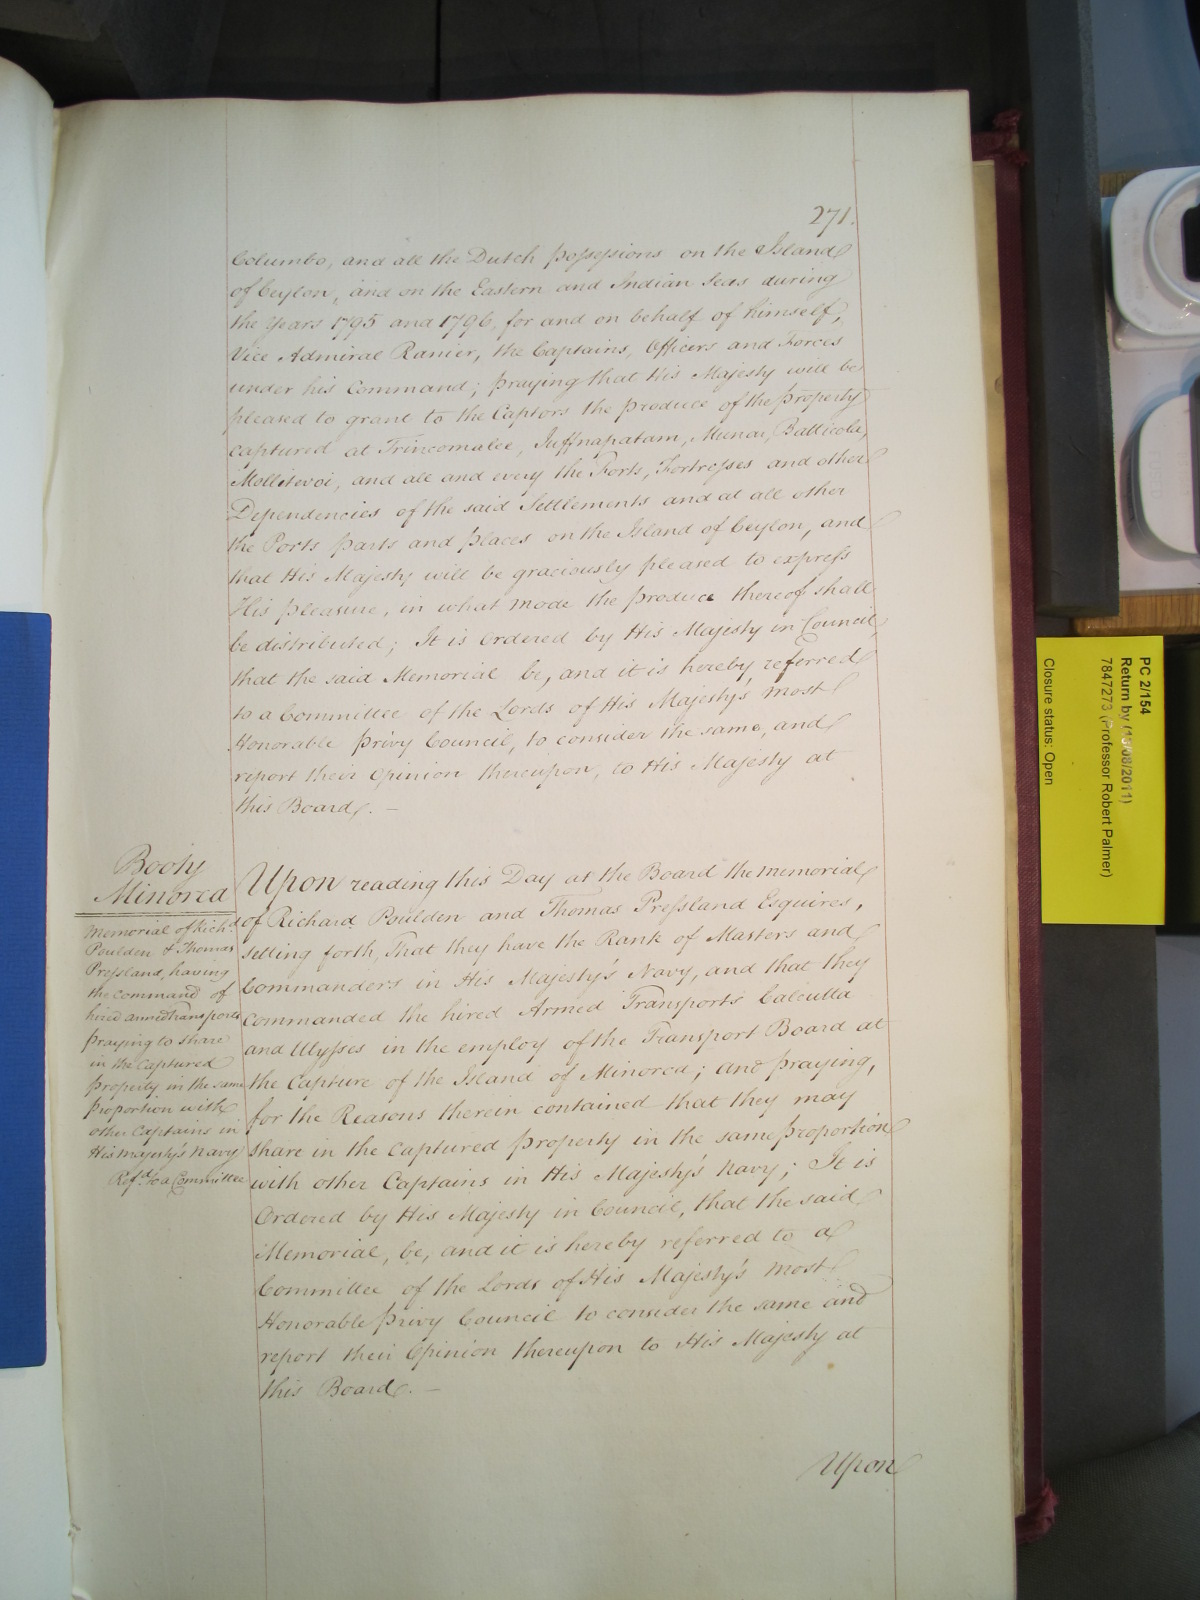 271.
Columbo, and all the Dutch possessions on the Island
of Ceylon, and on the Eastern and Indian Seas during
the Years 1795 and 1796, for and on behalf of himself,
Vice Admiral Ranier, the Captains, Officers and Forces
under his Command; praying that His Majesty will be
pleased to grant to the Captors the produce of the property
captured at Trincomalee, Jaffnapatam, Menar, Batticola,
Mollitevoi, and all and every the Forts, Fortresses and other
Dependencies of the said Settlements and at all other
the Ports parts and places on the Island of Ceylon, and
that His Majesty will be graciously pleased to express
His pleasure, in what mode the produce thereof shall
be distributed; It is Ordered by His Majesty in Council,
that the said Memorial be, and it is hereby referred
to a Committee of the Lords of His Majesty's most
Honorable privy Council, to consider the same, and
report their Opinion thereupon, to His Majesty at
this Board. —
Booty
Minorca
Memorial of Rich.d
Poulden & Thomas
Pressland, having
the command of
hired armed transports
praying to share
in the Captured
property in the same
proportion with
other Captains in
His majesty's Navy
Ref.d to a Committee
Upon reading this Day at the Board the memorial
of Richard Poulden and Thomas Pressland Esquires,
setting forth, That they have the Rank of Masters and
Commanders in His Majesty's Navy, and that they
commanded the hired Armed Transports Calcutta
and Ulysses in the employ of the Transport Board at
the Capture of the Island of Minorca; and praying,
for the Reasons therein contained that they may
share in the Captured property in the same proportion
with other Captains in His Majesty's Navy; It is
Ordered by His Majesty in Council, that the said
Memorial, be, and it is hereby referred to a
Committee of the Lords of His Majesty's most
Honorable privy Council to consider the same and
report their Opinion thereupon to His Majesty at
this Board. —
Upon
PC 2/154
Return by (13/08/2011)
7847273 (Professor Robert Palmer)
Closure status: Open